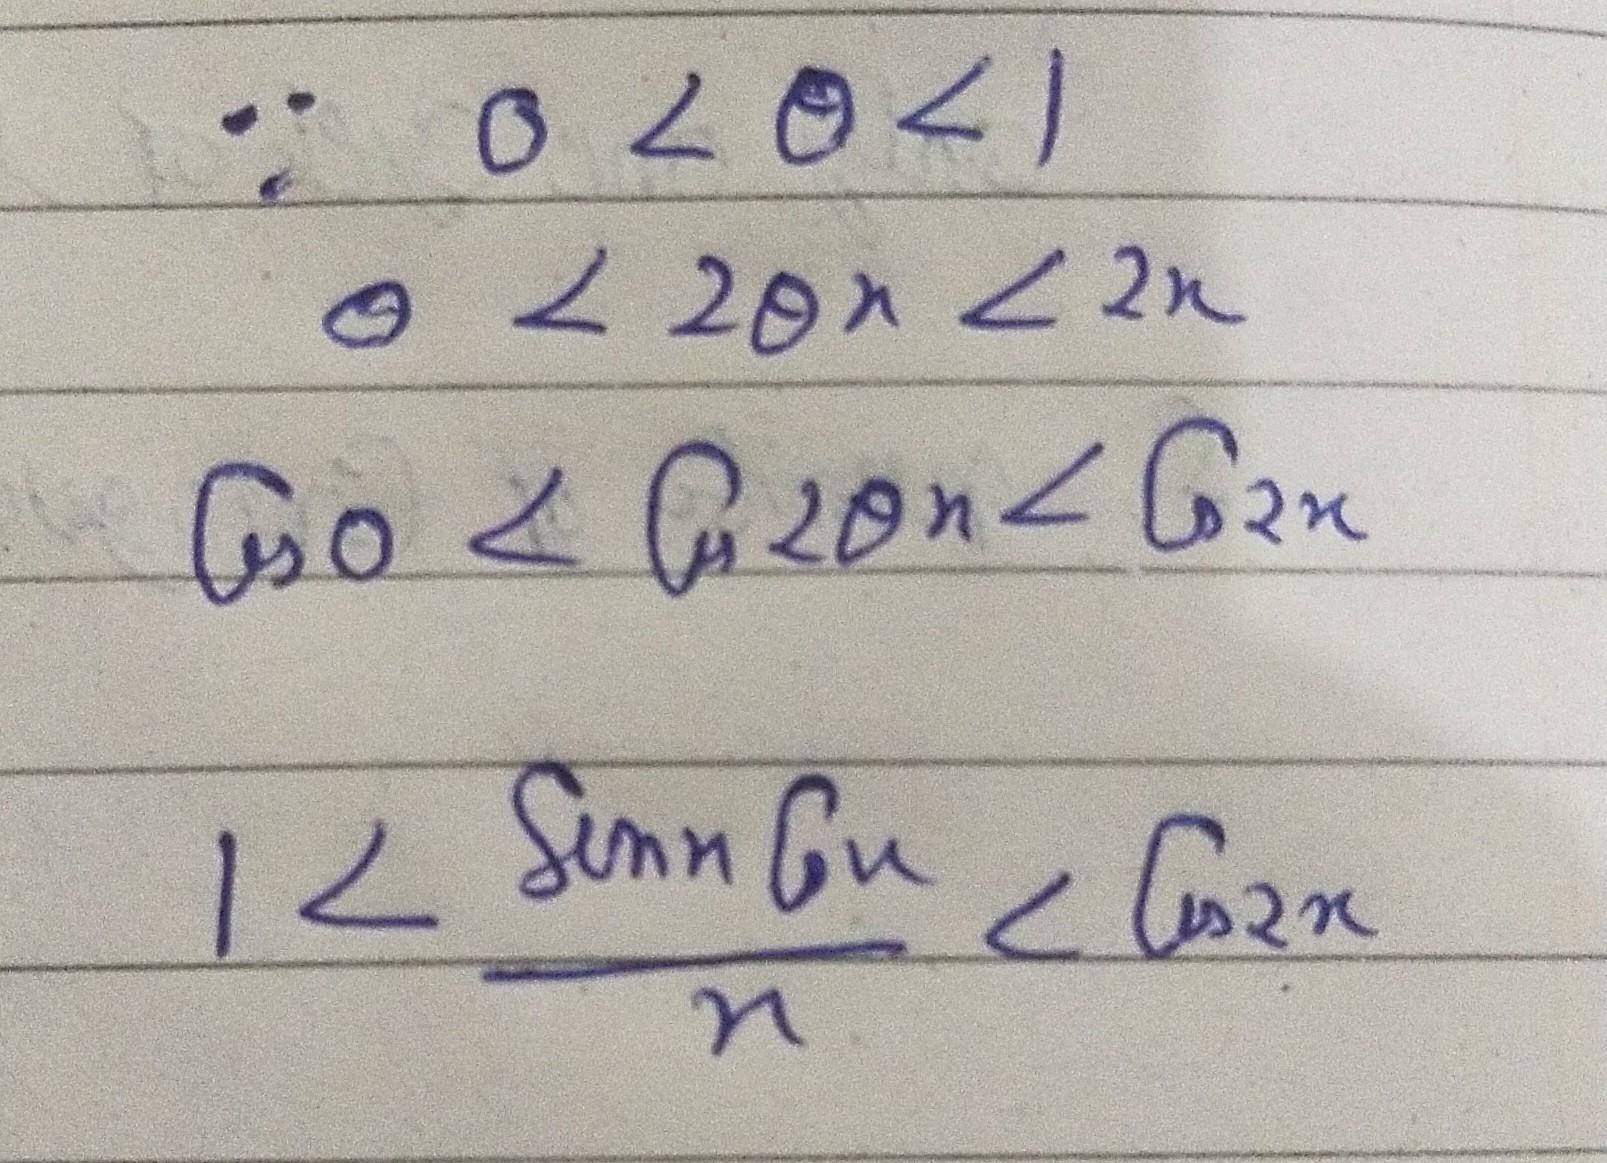 ∵ 0 < θ < 1
θ < 2θx < 2x
Cos 0 < Cos 2θx < Cos 2x
1 < Sin x Cos x / x < Cos 2x